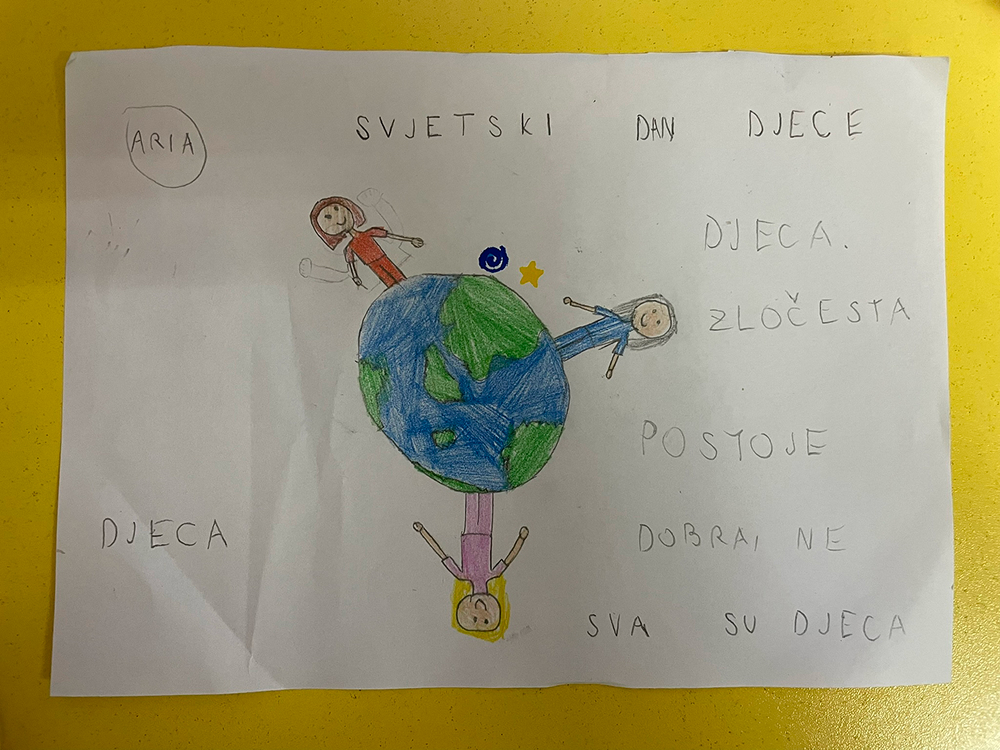 ARIA
SVJETSKI DAN DJECE
DJECA.
ZLOČESTA
POSTOJE
DJECA
DOBRA, NE
SVA SU DJECA